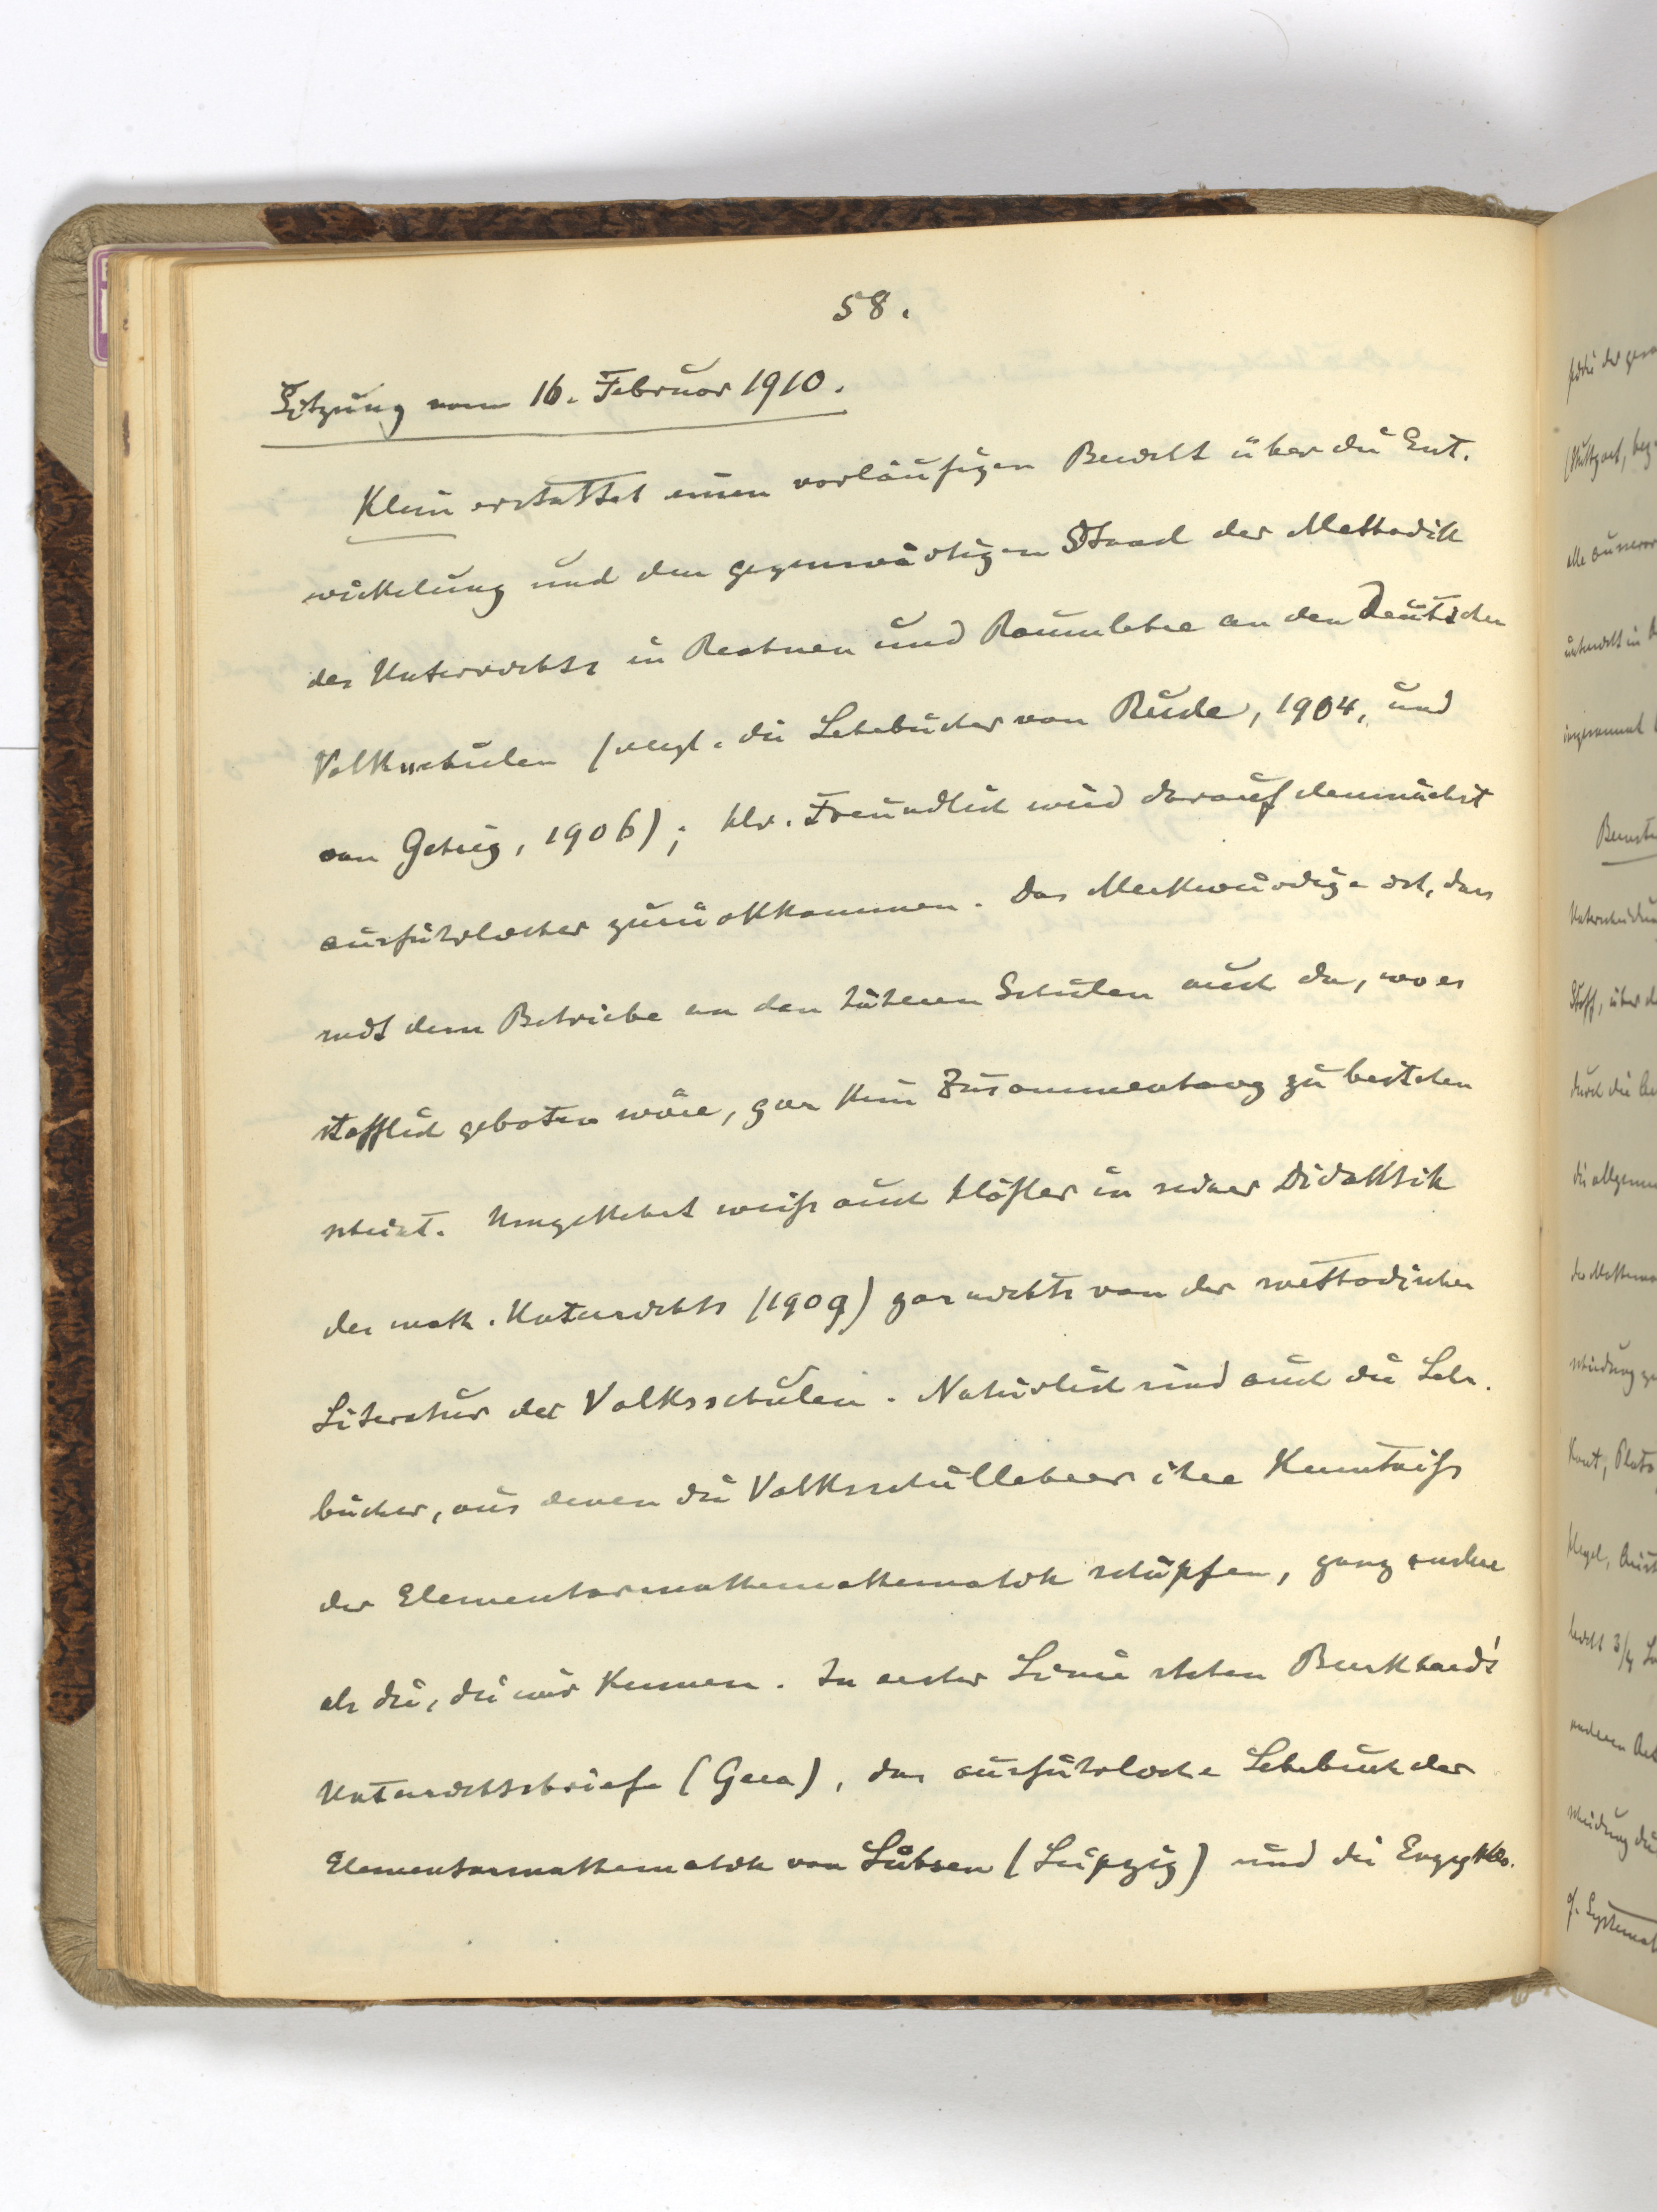 58.
Sitzung vom 16. Februar 1910.
Klein erstattet einen vorläufigen Bericht über die Ent-
wickelung und den gegenwärtigen Stand der Methodik
des Unterrichts in Rechnen und Raumlehre an den Deutschen
Volksschulen (vergl. die Lehrbücher von Rude, 1904, und
von Gehrig, 1906); Hr. Freundlich wird darauf demnächst
ausführlicher zurückkommen. Das Merkwürdige ist, dass
mit dem Betriebe an den höheren Schulen auch da, wo es
stofflich geboten wäre, gar kein Zusammenhang zu bestehen
scheint. Umgekehrt weiß auch Höfler in seiner Didaktik
des math. Unterrichts (1909) gar nichts von der methodischen
Literatur der Volksschulen. Natürlich sind auch die Lehr-
bücher, aus denen die Volksschullehrer ihre Kenntniß
der Elementarmathemathematik schöpfen, ganz andere
als die, die wir kennen. In erster Linie stehen Burkhardt's
Unterrichtsbriefe (Gera), das ausführliche Lehrbuch der
Elementarmathematik von Lübsen (Leipzig) und die Enzyklo-
pädie der
(Stuttgart,
alle
unterricht in
insgesammt
Stoff, über
durch die
die allgemei
Kant, Plato
Hegel,
anderen